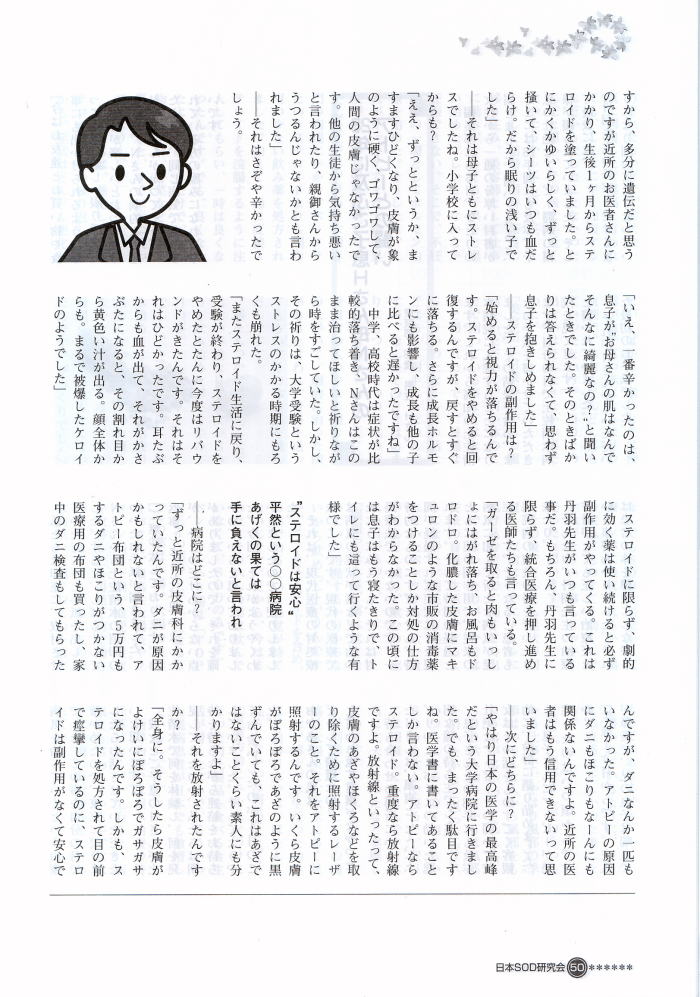 すから、多分に遺伝だと思う
のですが近所のお医者さんに
かかり、生後1ヶ月からステ
ロイドを塗っていました。と
にかくかゆいらしく、ずっと
掻いて、シーツはいつも血だ
らけ。だから眠りの浅い子で
した」
――それは母子ともにストレ
スでしたね。小学校に入って
からも?
「ええ、ずっとというか、ま
すますひどくなり、皮膚が象
のように硬く、ゴワゴワして、
人間の皮膚じゃなかったで
す。他の生徒から気持ち悪い
と言われたり、親御さんから
うつるんじゃないかとも言わ
れました」
――それはさぞや辛かったで
しょう。
「いえ、一番辛かったのは、
息子が〝お母さんの肌はなんで
そんなに綺麗なの?〟と聞い
たときでした。そのときばか
りは答えられなくて、思わず
息子を抱きしめました」
――ステロイドの副作用は?
「始めると視力が落ちるんで
す。ステロイドをやめると回
復するんですが、戻すとすぐ
に落ちる。さらに成長ホルモ
ンにも影響し、成長も他の子
に比べると遅かったですね」
中学、高校時代は症状が比
較的落ち着き、Nさんはこの
まま治ってほしいと祈りなが
ら時をすごしていた。しかし、
その祈りは、大学受験という
ストレスのかかる時期にもろ
くも崩れた。
「またステロイド生活に戻り、
受験が終わり、ステロイドを
やめたとたんに今度はリバウ
ンドがきたんです。それはそ
れはひどかったです。耳たぶ
からも血が出て、それがかさ
ぶたになると、その割れ目か
ら黄色い汁が出る。顔全体か
らも。まるで被爆したケロイ
ドのようでした」
ステロイドに限らず、劇的
に効く薬は使い続けると必ず
副作用がやってくる。これは
丹羽先生がいつも言っている
事だ。もちろん、丹羽先生に
限らず、統合医療を押し進め
る医師たちも言っている。
「ガーゼを取ると肉もいっし
ょにはがれ落ち、お風呂もド
ロドロ。化膿した皮膚にマキ
ュロンのような市販の消毒薬
をつけることしか対処の仕方
がわからなかった。この頃に
は息子はもう寝たきりで、ト
イレにも這って行くような有
様でした」
〝ステロイドは安心〟
平然という○○病院
あげくの果ては
手に負えないと言われ
――病院はどこに?
「ずっと近所の皮膚科にかか
っていたんです。ダニが原因
かもしれないと言われて、ア
トピー布団という、5万円も
するダニやほこりがつかない
医療用の布団も買ったし、家
中のダニ検査もしてもらった
んですが、ダニなんか一匹も
いなかった。アトピーの原因
にダニもほこりもなーんにも
関係ないんですよ。近所の医
者はもう信用できないって思
いました」
――次にどちらに?
「やはり日本の医学の最高峰
だという大学病院に行きまし
た。でも、まったく駄目です
ね。医学書に書いてあること
しか言わない。アトピーなら
ステロイド。重度なら放射線
ですよ。放射線といったって、
皮膚のあざやほくろなどを取
り除くために照射するレーザ
ーのこと。それをアトピーに
照射するんです。いくら皮膚
がぼろぼろであざのように黒
ずんでいても、これはあざで
はないことくらい素人にも分
かりますよ」
――それを放射されたんです
か?
「全身に。そうしたら皮膚が
よけいにぼろぼろでガサガサ
になったんです。しかも、ス
テロイドを処方されて目の前
で痙攣しているのに、ステロ
イドは副作用がなくて安心で
日本SOD研究会 50 ******